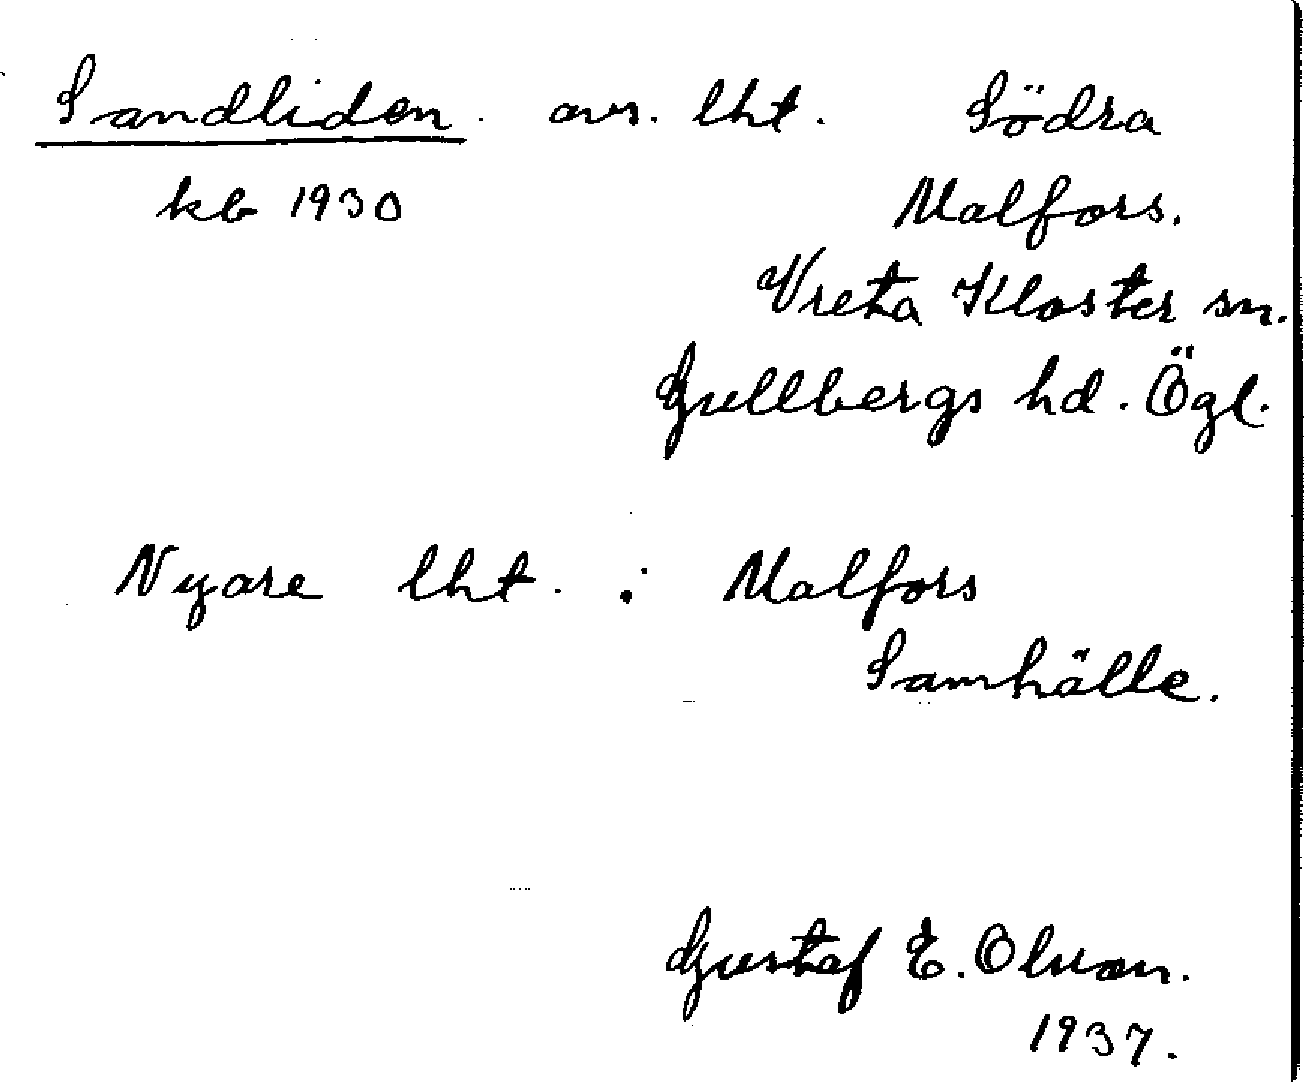 Sandliden. avs. lht. Södra
kb 1930 Malfors.
Vreta Kloster sn.
Gullbergs hd. Ögl.
Nyare lht. : Malfors
Samhälle.
Gustaf E. Olsson.
1937.